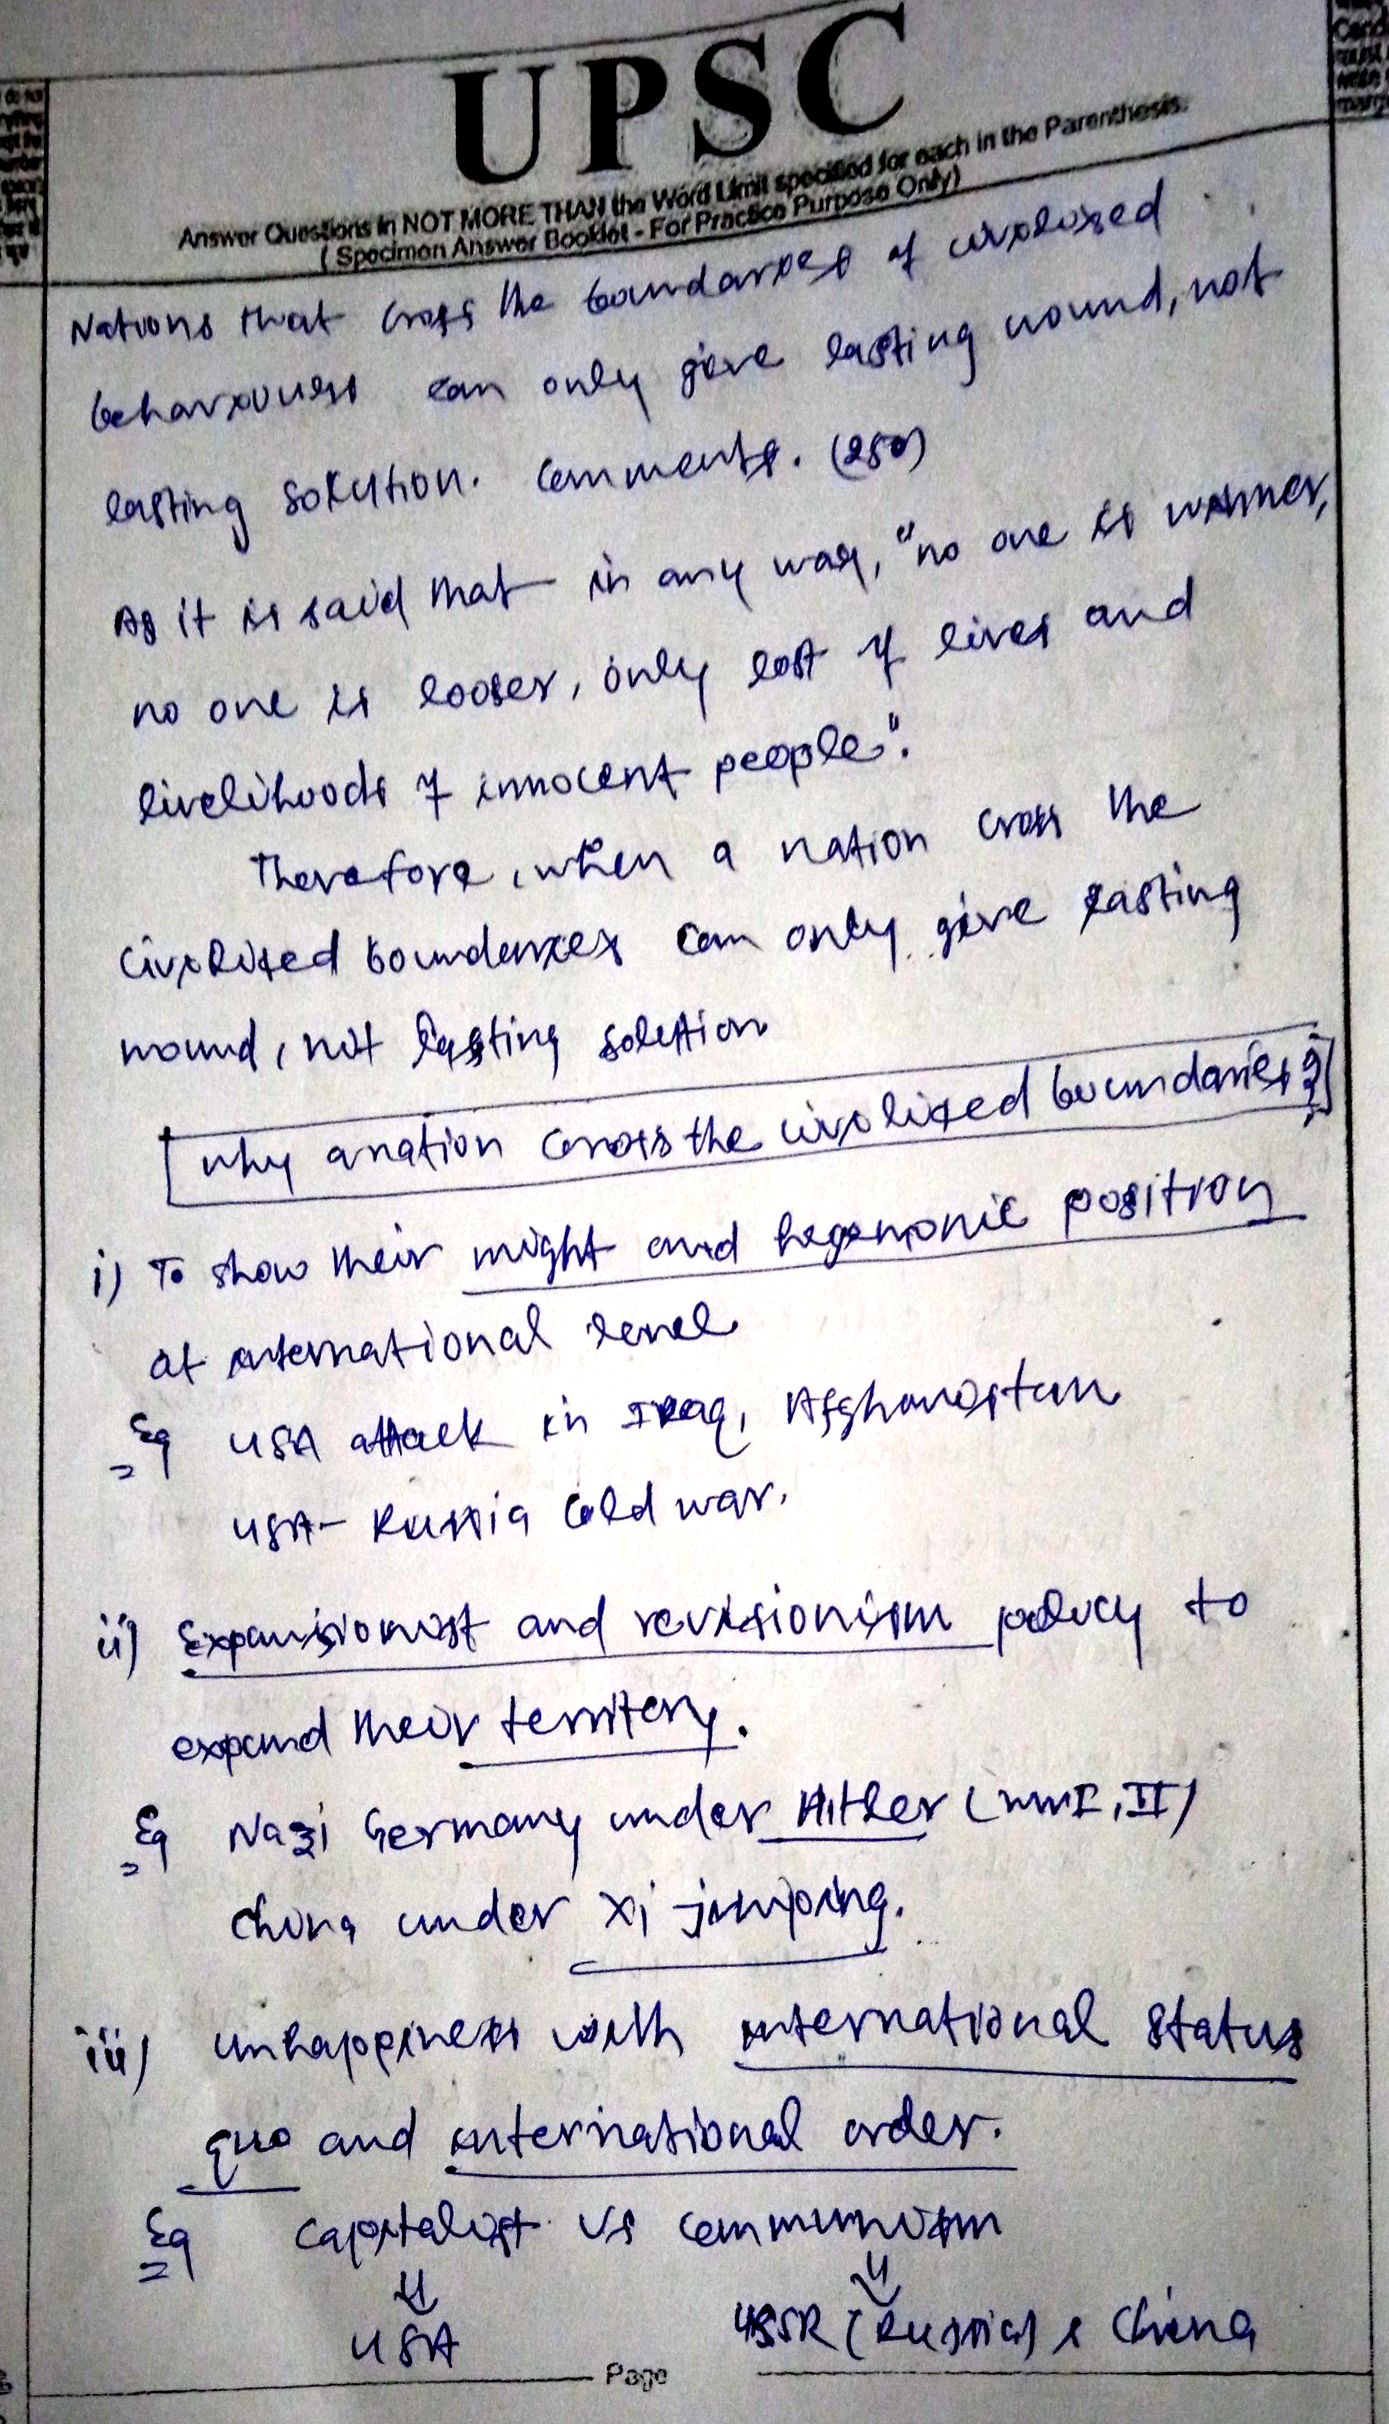 UPSC
Answer Questions in NOT MORE THAN the Word Limit specified for each in the Parenthesis.
( Specimen Answer Booklet - For Practice Purpose Only)
Nations that cross the boundaries of civilized
behaviours can only give lasting wound, not
lasting solution. Comments. (250)
As it is said that in any way, "no one is winner,
no one is looser, only lost of lives and
livelihoods of innocent people".
Therefore, when a nation cross the
civilized boundaries can only give lasting
wound, not lasting solution
why a nation cross the civilized boundaries?
i) To show their might and hegemonic position
at international level
Eg USA attack in Iraq, Afghanistan
USA- Russia Cold war.
ii) Expansionist and revisionism policy to
expand their territory.
Eg Nazi Germany under Hitler (WWI, II)
China under Xi jinping.
iii) unhappiness with international status
quo and international order.
Eg Capitalist vs communism
USA USSR (Russia) & China
Page